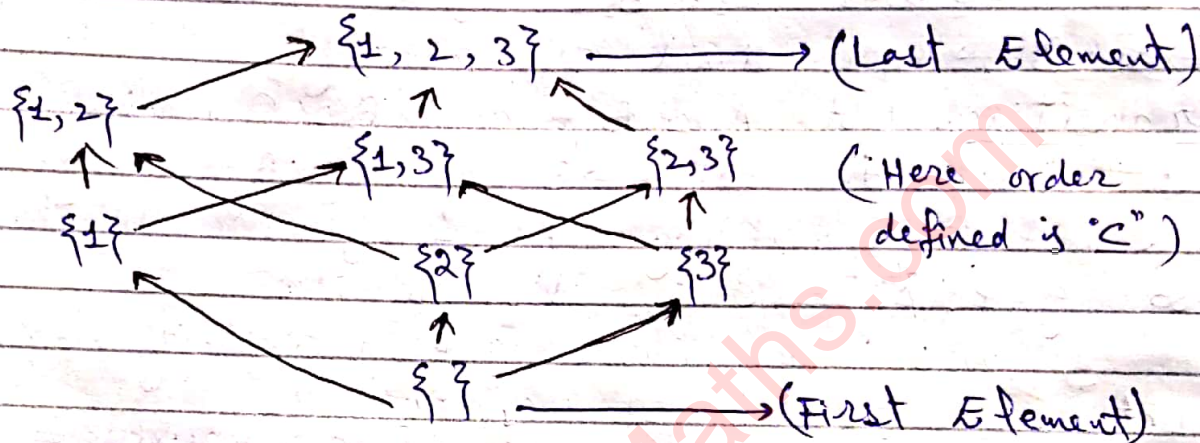 {1, 2, 3} (Last Element)
{1, 2}
{1,3} {2,3} (Here order
{1} defined is "⊂")
{2} {3}
{ } (First Element)
Maths.com